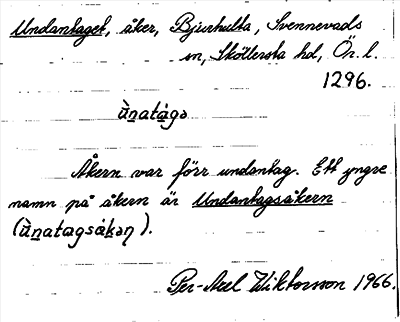 Undantaget, åker, Bjurhulta, Svennevads
sn, Sköllersta hd, Ön. l.
1296.
ùnatágə
Åkern var förr undantag. Ett yngre
namn på åkern är Undantagsåkern
(ùnatagsákəɳ).
Per-Axel Wiktorsson 1966.